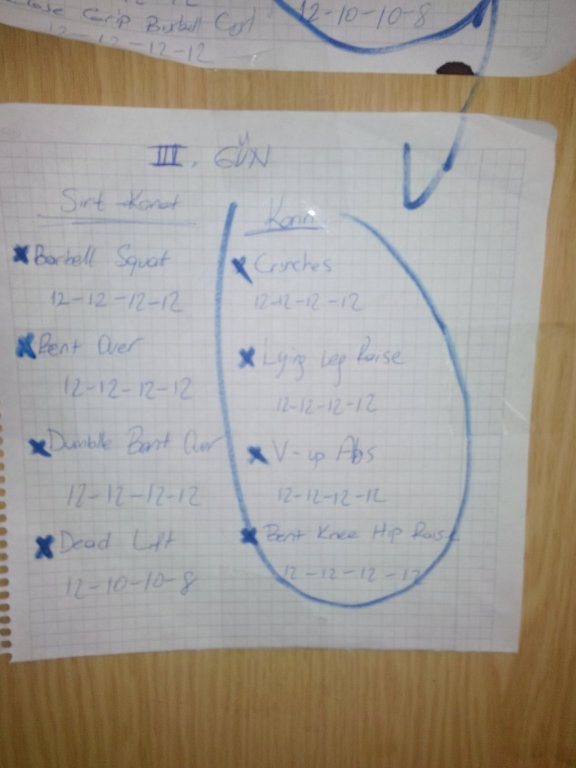 Grip Barbell Curl
12-12-12-12
12-10-10-8
III. GÜN
Sırt-Kanat
Barbell Squat
12-12-12-12
Bent Over
12-12-12-12
Dumble Bent Over
12-12-12-12
Dead Lift
12-10-10-8
Karın
Crunches
12-12-12-12
Lying Leg Raise
12-12-12-12
V-up Abs
12-12-12-12
Bent Knee Hip Raise
12-12-12-12